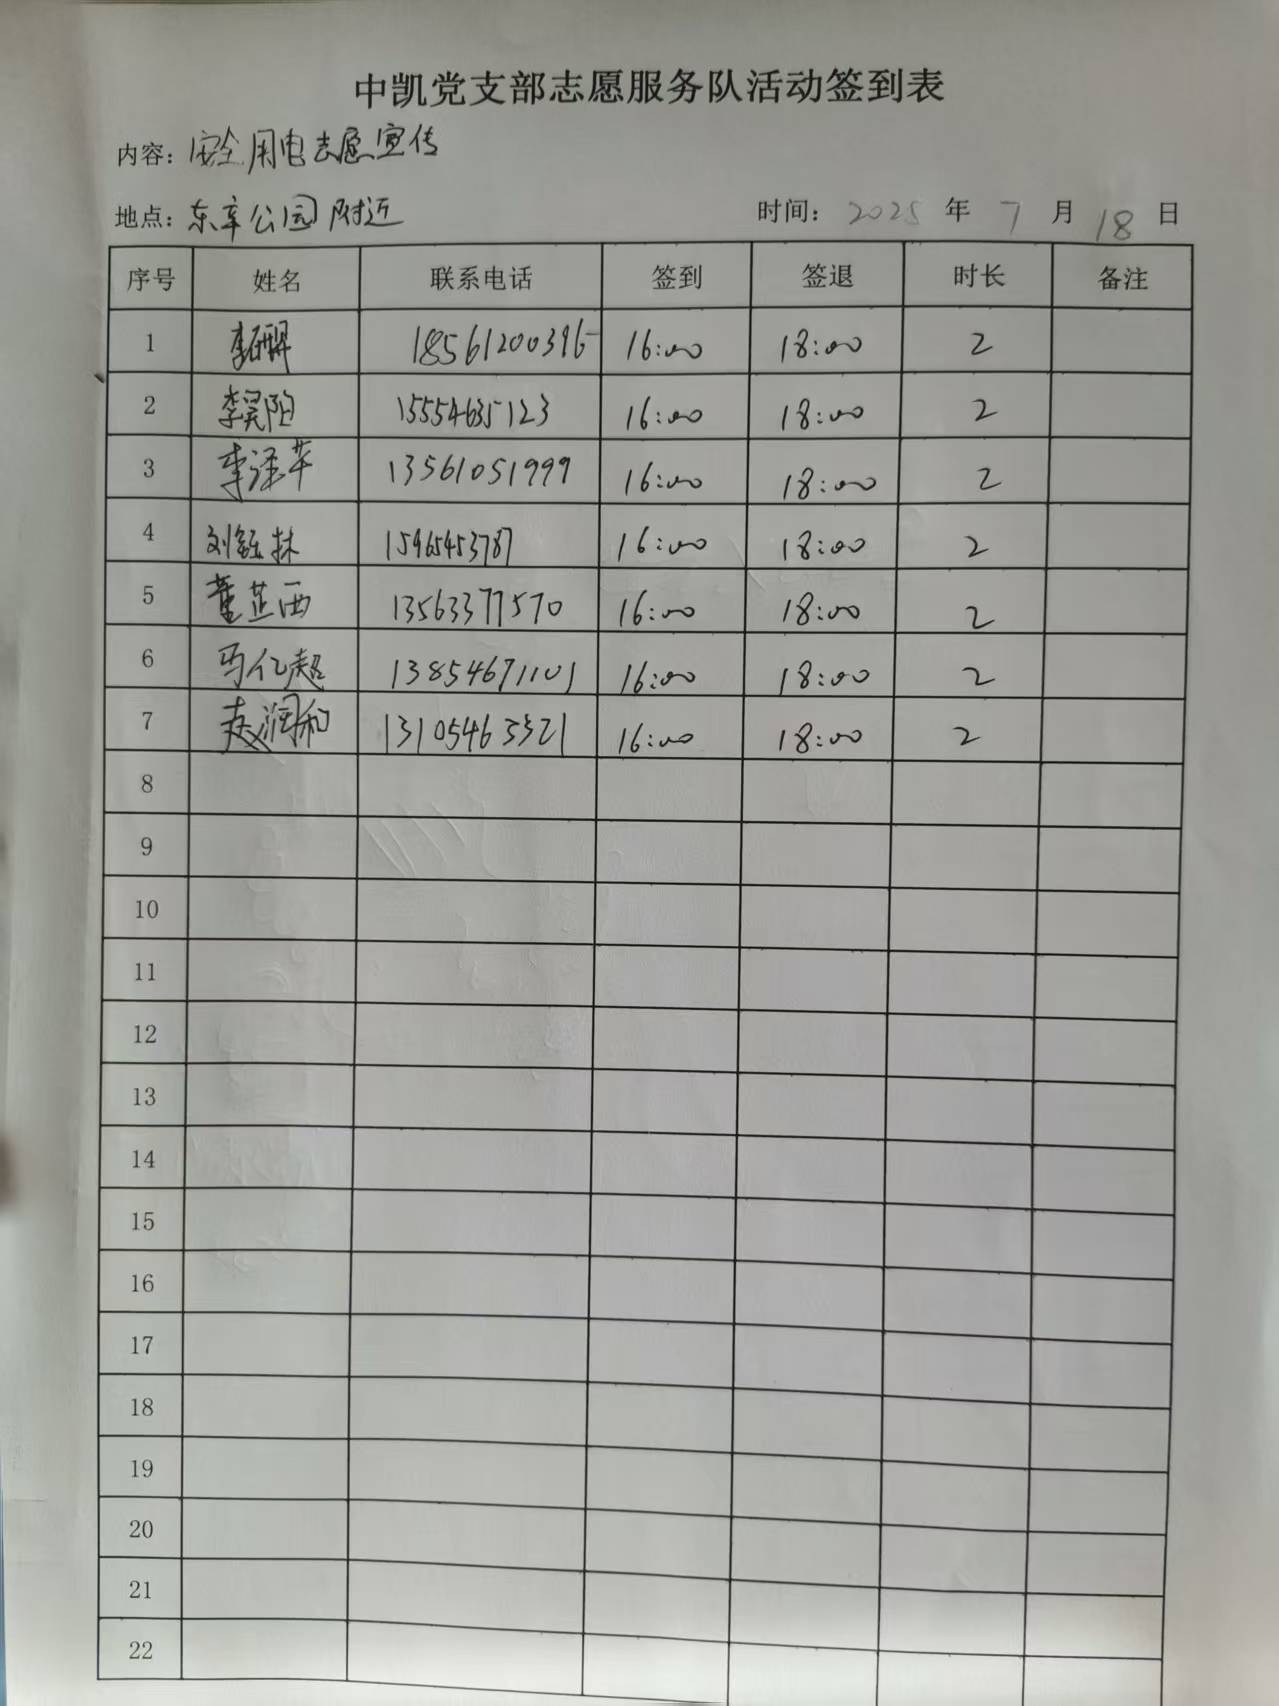 中凯党支部志愿服务队活动签到表
内容：安全用电志愿宣传
地点：东辛公园附近 时间：2025 年 7 月 18 日
序号 姓名 联系电话 签到 签退 时长 备注
1 18561200396 16:00 18:00 2
2 李昊阳 15554635123 16:00 18:00 2
3 李泽芊 13561051999 16:00 18:00 2
4 刘钰林 15965453787 16:00 18:00 2
5 董芷西 13563377570 16:00 18:00 2
6 马亿超 13854671101 16:00 18:00 2
7 赵润和 13105463321 16:00 18:00 2
8
9
10
11
12
13
14
15
16
17
18
19
20
21
22